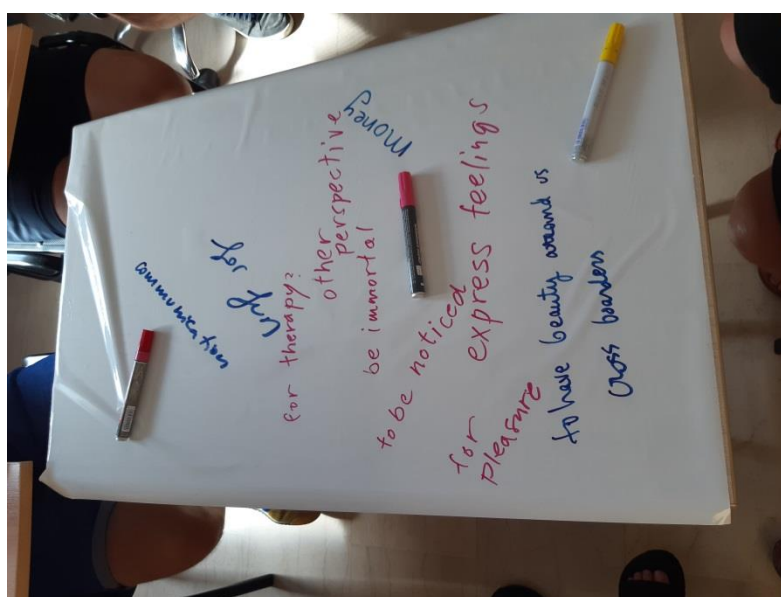 communication
for
for therapy?
other
perspective
be immortal
money
to be noticed
express feelings
for
pleasure
to have beauty around us
cross boarders